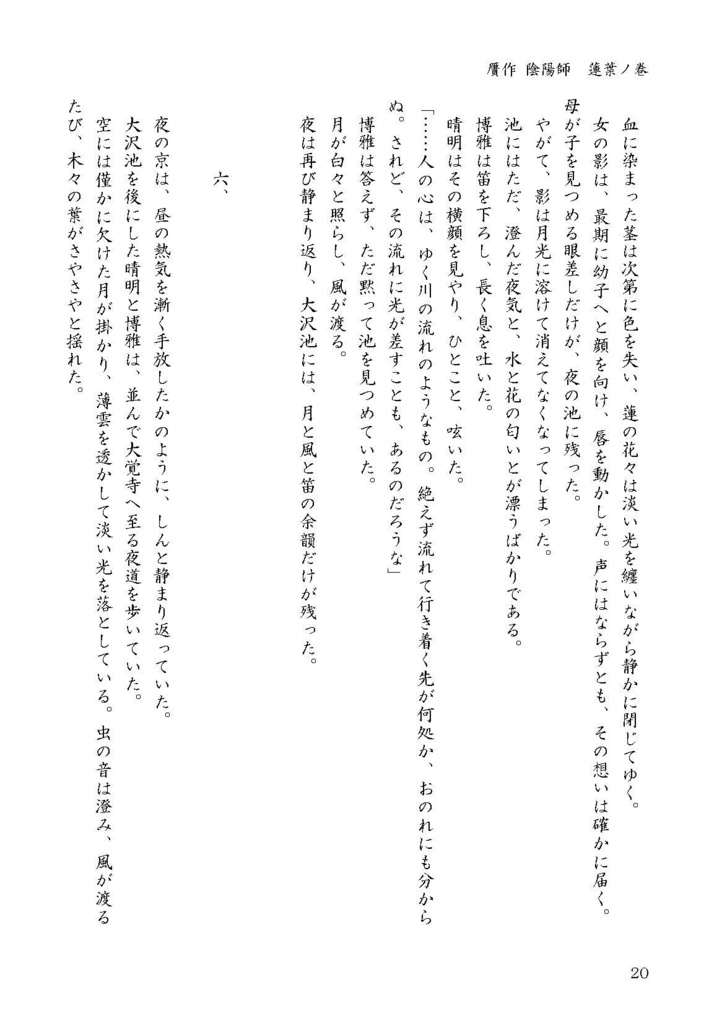 贋作 陰陽師　蓮葉ノ巻
血に染まった茎は次第に色を失い、蓮の花々は淡い光を纏いながら静かに閉じてゆく。
女の影は、最期に幼子へと顔を向け、唇を動かした。声にはならずとも、その想いは確かに届く。
母が子を見つめる眼差しだけが、夜の池に残った。
やがて、影は月光に溶けて消えてなくなってしまった。
池にはただ、澄んだ夜気と、水と花の匂いとが漂うばかりである。
博雅は笛を下ろし、長く息を吐いた。
晴明はその横顔を見やり、ひとこと、呟いた。
「……人の心は、ゆく川の流れのようなもの。絶えず流れて行き着く先が何処か、おのれにも分から
ぬ。されど、その流れに光が差すことも、あるのだろうな」
博雅は答えず、ただ黙って池を見つめていた。
月が白々と照らし、風が渡る。
夜は再び静まり返り、大沢池には、月と風と笛の余韻だけが残った。
六、
夜の京は、昼の熱気を漸く手放したかのように、しんと静まり返っていた。
大沢池を後にした晴明と博雅は、並んで大覚寺へ至る夜道を歩いていた。
空には僅かに欠けた月が掛かり、薄雲を透かして淡い光を落としている。虫の音は澄み、風が渡る
たび、木々の葉がさやさやと揺れた。
20